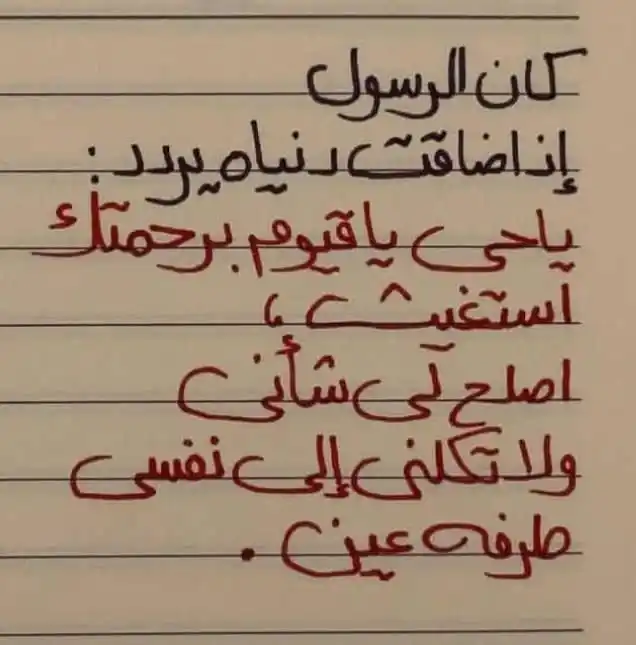 كان الرسول
إذا ضاقت دنياه يردد :
ياحي ياقيوم برحمتك
استغيث ،
اصلح لي شأني
ولا تكلني إلى نفسي
طرفه عين .